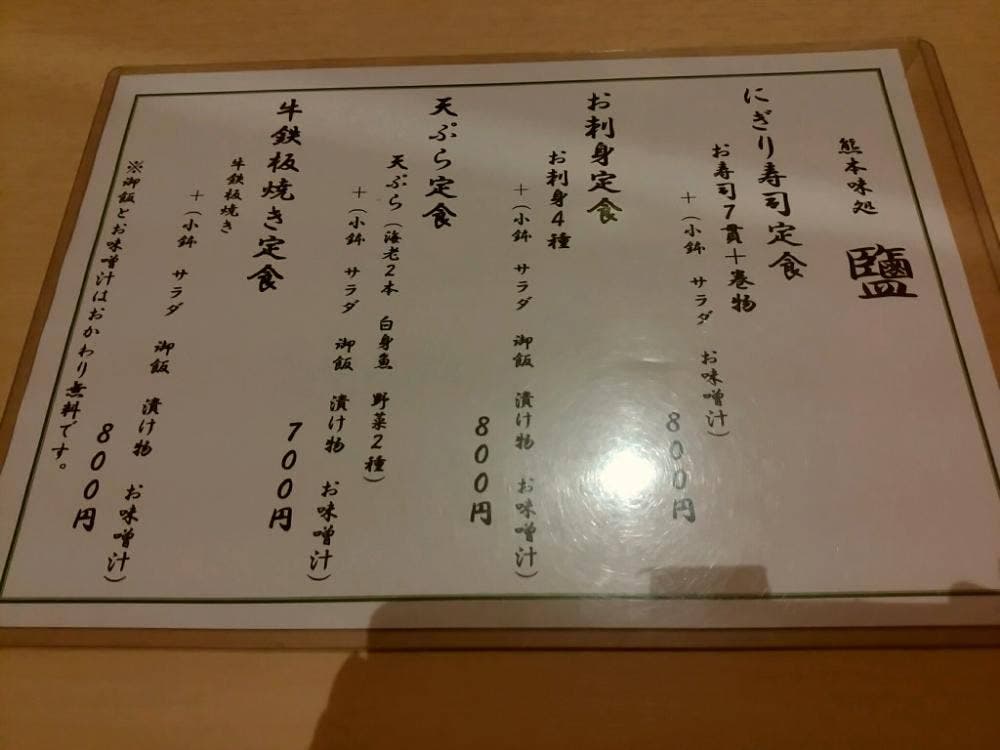 熊本味処 鹽
にぎり寿司定食
お寿司7貫+巻物
+(小鉢 サラダ お味噌汁)
800円
お刺身定食
お刺身4種
+(小鉢 サラダ 御飯 漬け物 お味噌汁)
800円
天ぷら定食
天ぷら(海老2本 白身魚 野菜2種)
+(小鉢 サラダ 御飯 漬け物 お味噌汁)
700円
牛鉄板焼き定食
牛鉄板焼き
+(小鉢 サラダ 御飯 漬け物 お味噌汁)
800円
※御飯とお味噌汁はおかわり無料です。